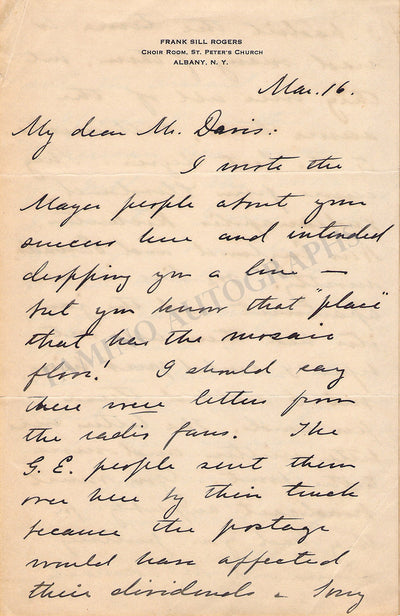 FRANK SILL ROGERS
CHOIR ROOM, ST. PETER'S CHURCH
ALBANY, N. Y.
Mar. 16.
My dear Mr. Davis:
I wrote the
Mayer people about your
success here and intended
dropping you a line —
but you know that "place"
that has the mosaic
floor! I should say
there were letters from
the radio fans. The
G. E. people sent them
over here by their truck
because the postage
would have affected
their dividends
TAMINO AUTOGRAPHS